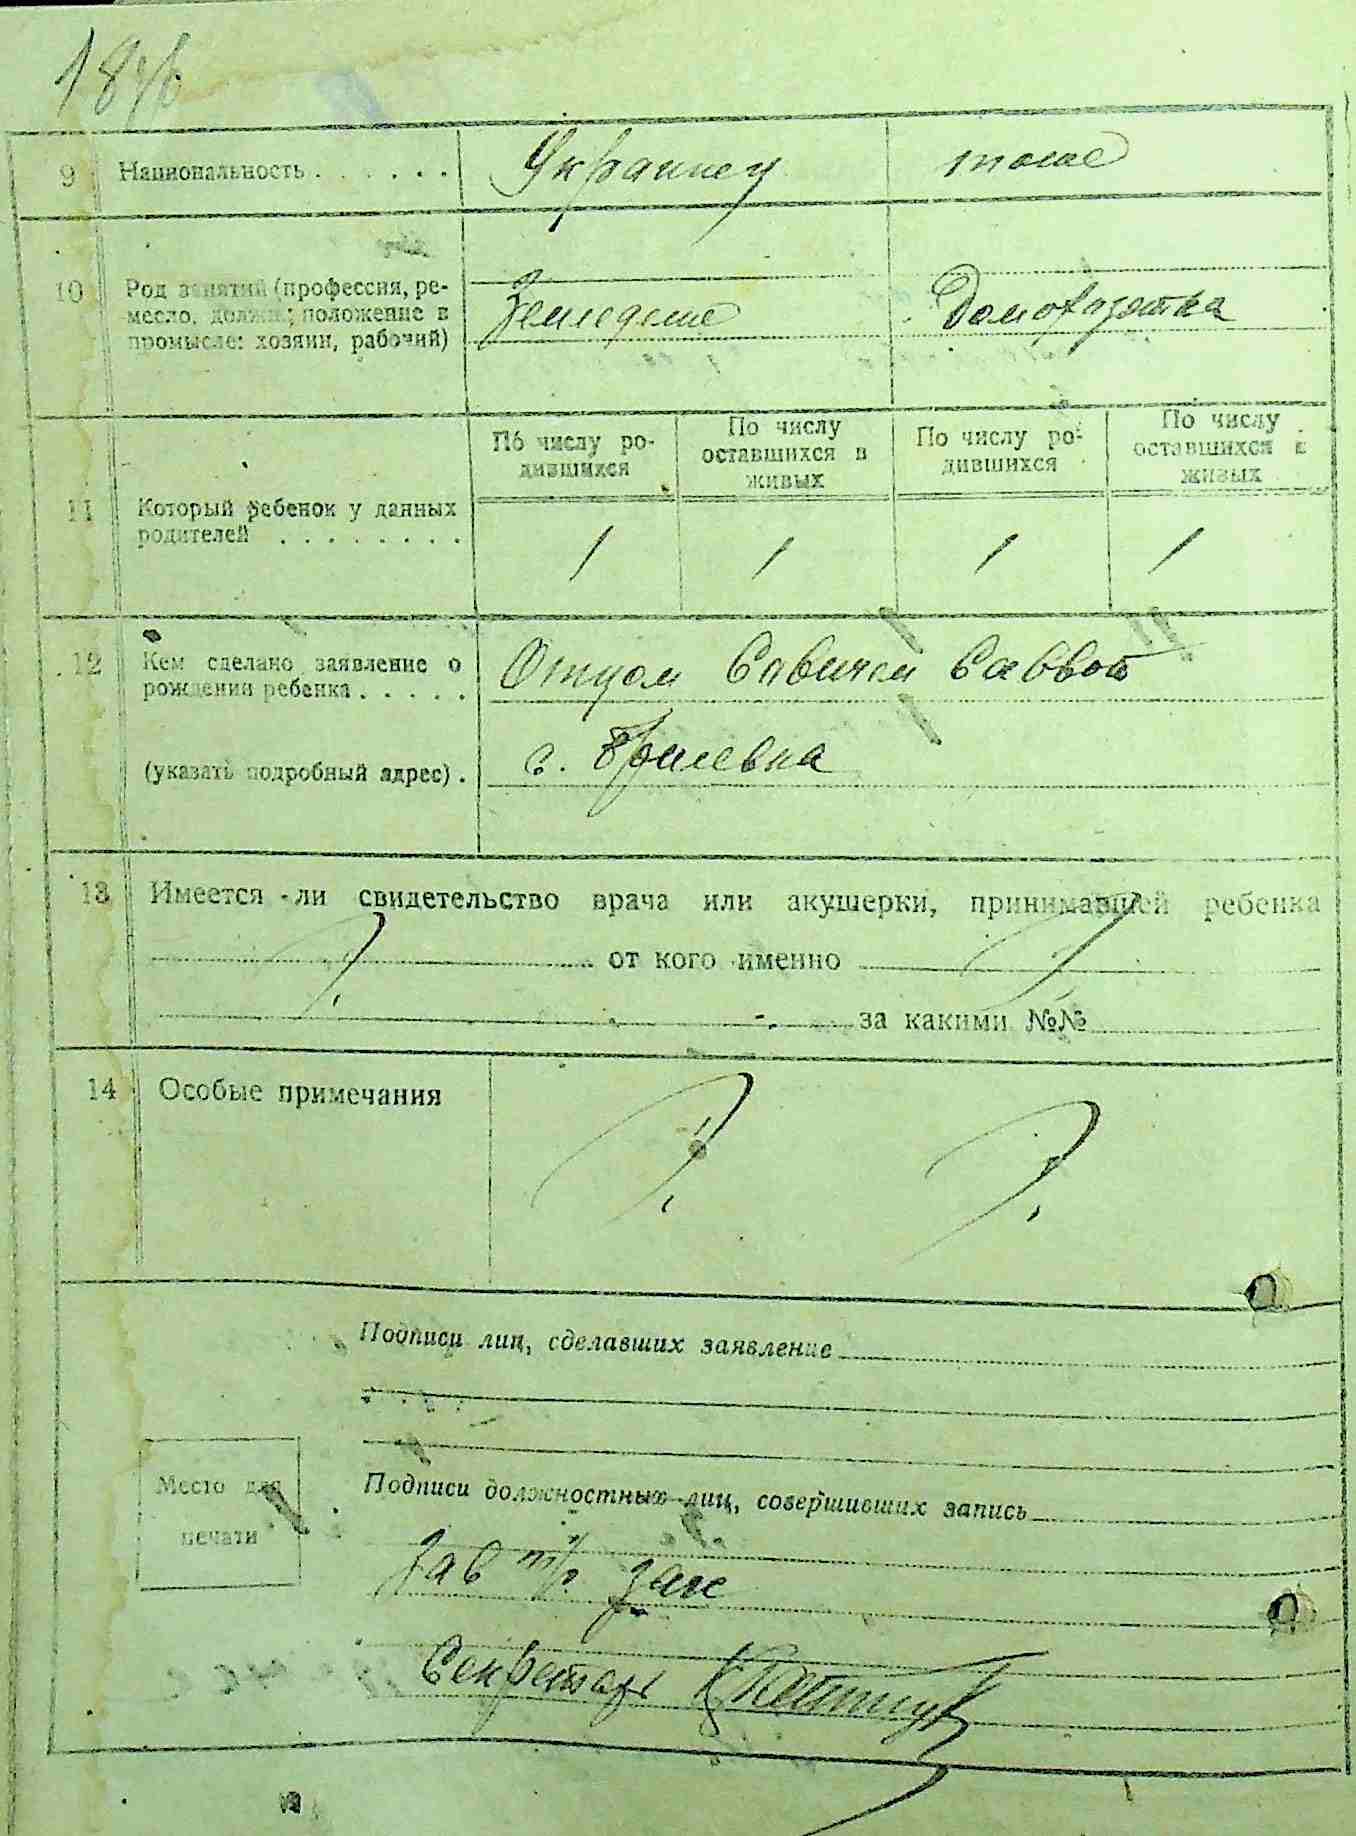 9 Национальность . . . . . . Украинец тоже
10 Род занятий (профессия, ре-
месло, должн.; положение в
промысле: хозяин, рабочий)
Земледелие Домохозяйка
По числу ро-
дившихся
По числу
оставшихся в
живых
По числу ро-
дившихся
По числу
оставшихся в
живых
11 Который ребенок у данных
родителей . . . . . . . .
1 1 1 1
12 Кем сделано заявление о
рождении ребенка . . . . .
Отцом Саввой
(указать подробный адрес) .
13 Имеется ли свидетельство врача или акушерки, принимавшей ребенка
от кого именно
за какими №№
14 Особые примечания
Подписи лиц, сделавших заявление
Место для
печати
Подписи должностных лиц, совершивших запись
Зав
Секретарь